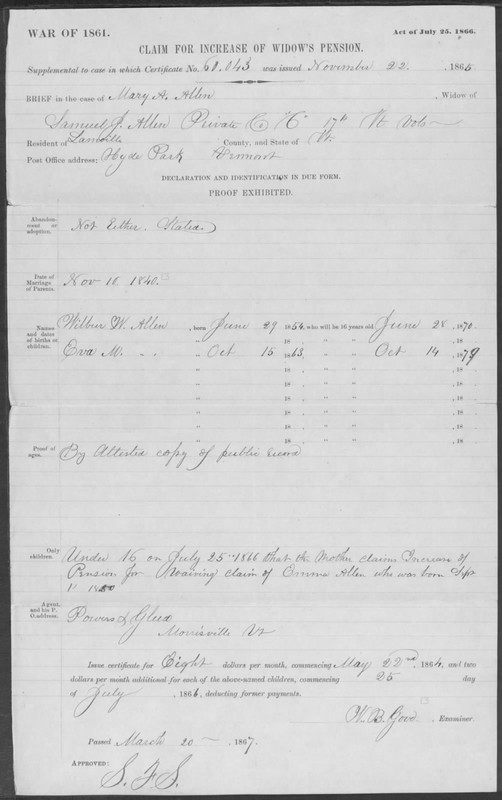 WAR OF 1861.
Act of July 25, 1866.
CLAIM FOR INCREASE OF WIDOW'S PENSION.
Supplemental to case in which Certificate No. 60.043 was issued November 22, 1865
BRIEF in the case of Mary A. Allen, Widow of
Samuel J. Allen Private Co "H" 17th Vt Vols
Resident of Lamoille County, and State of Vt.
Post Office address; Hyde Park Vermont
DECLARATION AND IDENTIFICATION IN DUE FORM.
PROOF EXHIBITED.
Abandonment or adoption.
Not Either Stated
Date of Marriage of Parents.
Nov 10, 1840.
Names and dates of births of children.
Wilbur W. Allen, born June 29 1854, who will be 16 years old June 28, 1870
Eva M. " " Oct 15 1863, " " Oct 14, 1879
Proof of ages.
By Attested copy of public record
Only children.
Under 16 on July 25th 1866 that the Mother claims Increase of
Pension for Waiving claim of Emma Allen who was born Sept
1st 1850
Agent, and his P. O. address.
Powers & Gleed
Morrisville Vt
Issue certificate for Eight dollars per month, commencing May 22nd, 1864, and two
dollars per month additional for each of the above-named children, commencing 25 day
of July, 1866, deducting former payments.
W. B. Gove, Examiner.
Passed March 20, 1867.
APPROVED:
S. F. S.